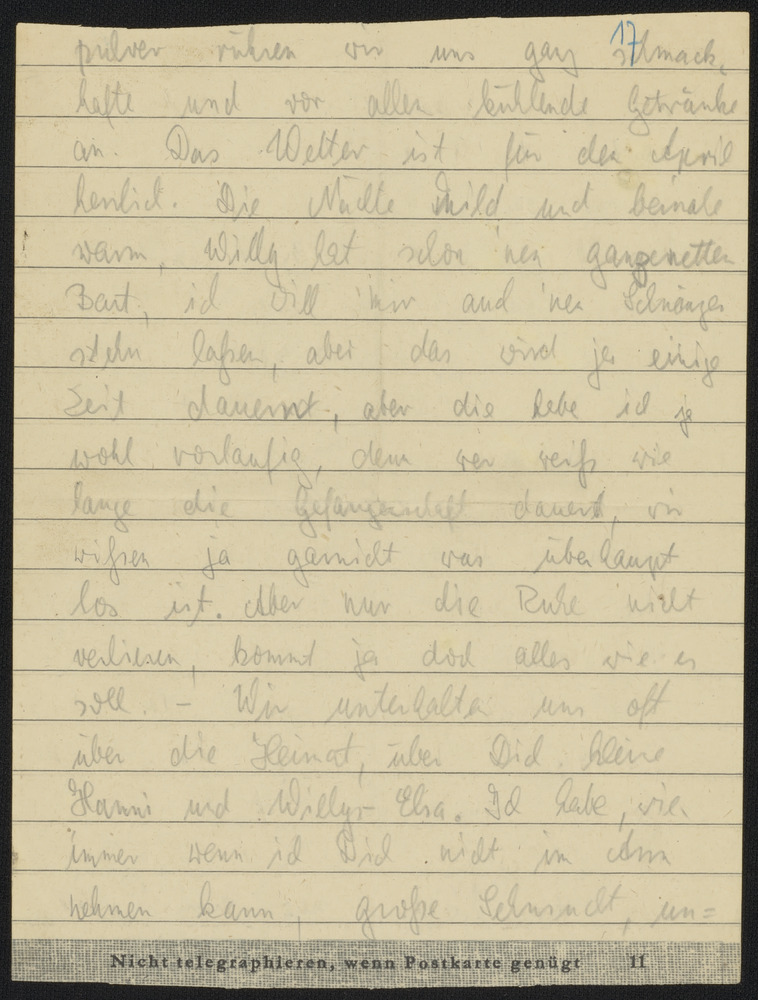 17
pulver rühren wir uns ganz schmack-
hafte und vor allem kühlende Getränke
an. Das Wetter ist für den April
herrlich. Die Nächte mild und beinahe
warm, Willy hat schon 'nen ganz netten
Bart, ich will mir auch 'nen Schnäuzer
stehn laßen, aber das wird ja einige
Zeit dauern, aber die habe ich ja
wohl vorläufig, denn wer weiß wie
lange die Gefangenschaft dauert, wir
wißen ja garnicht was überhaupt
los ist. Aber nur die Ruhe nicht
verlieren, kommt ja doch alles wie es
soll. – Wir unterhalten uns oft
über die Heimat, über Dich kleine
Hanni und Willy's Elsa. Ich habe, wie
immer wenn ich Dich nicht im Arm
nehmen kann, große Sehnsucht, un=
Nicht telegraphieren, wenn Postkarte genügt 11